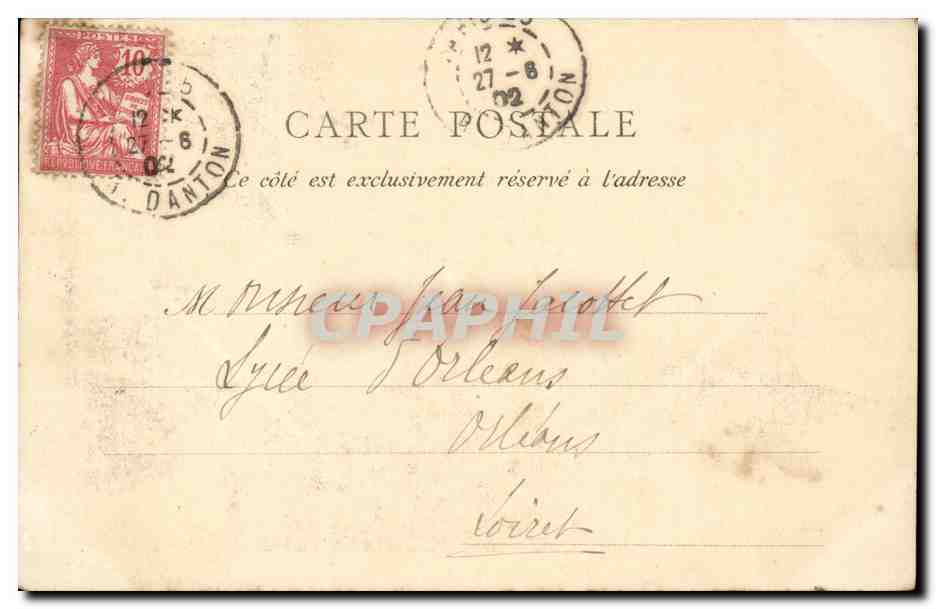 POSTES
10
12 *
27 - 6
02
DANTON
12 *
27 - 6
02
DANTON
CARTE POSTALE
Ce côté est exclusivement réservé à l'adresse
Monsieur Jean Jacottet
CPAPHIL
Lycée d'Orléans
Orléans
Loiret